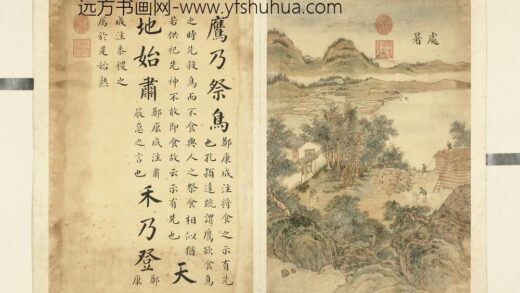 远方书画网-www.yfshuhua.com
處
暑
鷹乃祭鳥
鄭康成注將食之示有先
也孔穎達疏謂鷹欲食鳥
之時先殺鳥而不食與人之祭食相似猶
若供祀先神不敢即食故云示有先也
天
地始肅
鄭康成注肅
嚴急之言也
禾乃登
鄭
康
成注黍稷之
屬於是始熟